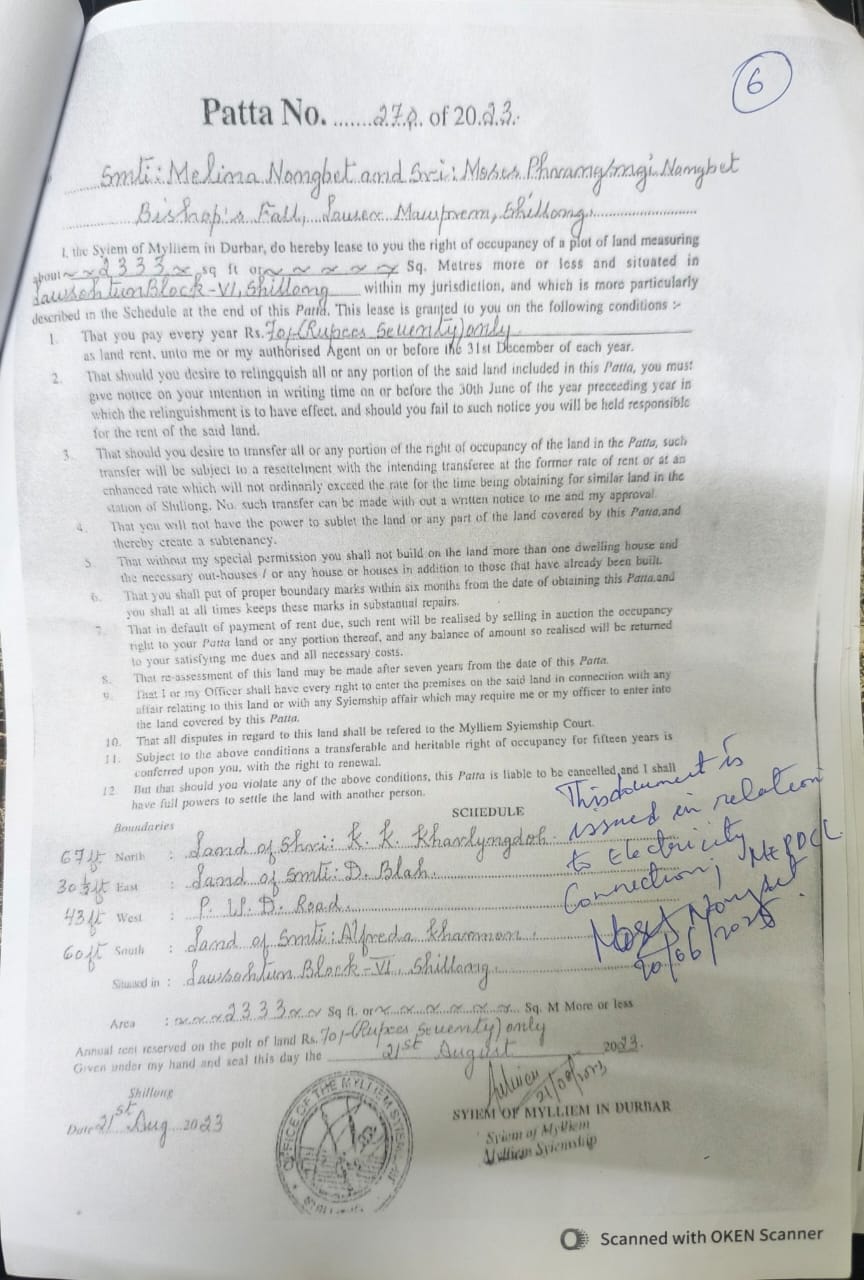 6
Patta No. .......270. of 2023.
Smti: Melina Nongbet and Sri: Moses Phrangsngi Nongbet
Bishop's Fall, Lausex Mawprem, Shillong
I, the Syiem of Mylliem in Durbar, do hereby lease to you the right of occupancy of a plot of land measuring
about 2333 sq ft or Sq. Metres more or less and situated in
Lawsohtun Block-VI, Shillong within my jurisdiction, and which is more particularly
described in the Schedule at the end of this Patta. This lease is granted to you on the following conditions :-
1. That you pay every year Rs. 70/-(Rupees Seventy) only
as land rent, unto me or my authorised Agent on or before the 31st December of each year.
2. That should you desire to relingquish all or any portion of the said land included in this Patta, you must
give notice on your intention in writing time on or before the 30th June of the year preceeding year in
which the relinguishment is to have effect, and should you fail to such notice you will be held responsible
for the rent of the said land.
3. That should you desire to transfer all or any portion of the right of occupancy of the land in the Patta, such
transfer will be subject to a resettelment with the intending transferee at the former rate of rent or at an
enhanced rate which will not ordinarily exceed the rate for the time being obtaining for similar land in the
station of Shillong. No. such transfer can be made with out a written notice to me and my approval
4. That you will not have the power to sublet the land or any part of the land covered by this Patta,and
thereby create a subtenancy.
5. That without my special permission you shall not build on the land more than one dwelling house and
the necessary out-houses / or any house or houses in addition to those that have already been built.
6. That you shall put of proper boundary marks within six months from the date of obtaining this Patta,and
you shall at all times keeps these marks in substantial repairs.
7. That in default of payment of rent due, such rent will be realised by selling in auction the occupancy
right to your Patta land or any portion thereof, and any balance of amount so realised will be returned
to your satisfying me dues and all necessary costs.
8. That re-assessment of this land may be made after seven years from the date of this Patta.
9. That I or my Officer shall have every right to enter the premises on the said land in connection with any
affair relating to this land or with any Syiemship affair which may require me or my officer to enter into
the land covered by this Patta.
10. That all disputes in regard to this land shall be refered to the Mylliem Syiemship Court.
11. Subject to the above conditions a transferable and heritable right of occupancy for fifteen years is
conferred upon you, with the right to renewal.
12. But that should you violate any of the above conditions, this Patta is liable to be cancelled,and I shall
have full powers to settle the land with another person.
SCHEDULE
Boundaries
67ft North : Land of Shri: K. K. Kharlyngdoh
30½ft East : Land of Smti: D. Blah.
43ft West : P. W. D. Road.
60ft South : Land of Smti: Alfreda Khammon
Situated in : Lawsohtun Block-VI, Shillong
This document is
issued in relation
to Electricity
Connection, MEPDCL
20/06/2025
Area : 2333 Sq ft. or Sq. M More or less
Annual rent reserved on the polt of land Rs. 70/-(Rupees Seventy) only
Given under my hand and seal this day the 21st August 2023.
21/08/2023
Shillong
Date 21st Aug 2023
SYIEM OF MYLLIEM IN DURBAR
Syiem of Mylliem
Mylliem Syiemship
OFFICE OF THE MYLLIEM SYIEMSHIP
Scanned with OKEN Scanner